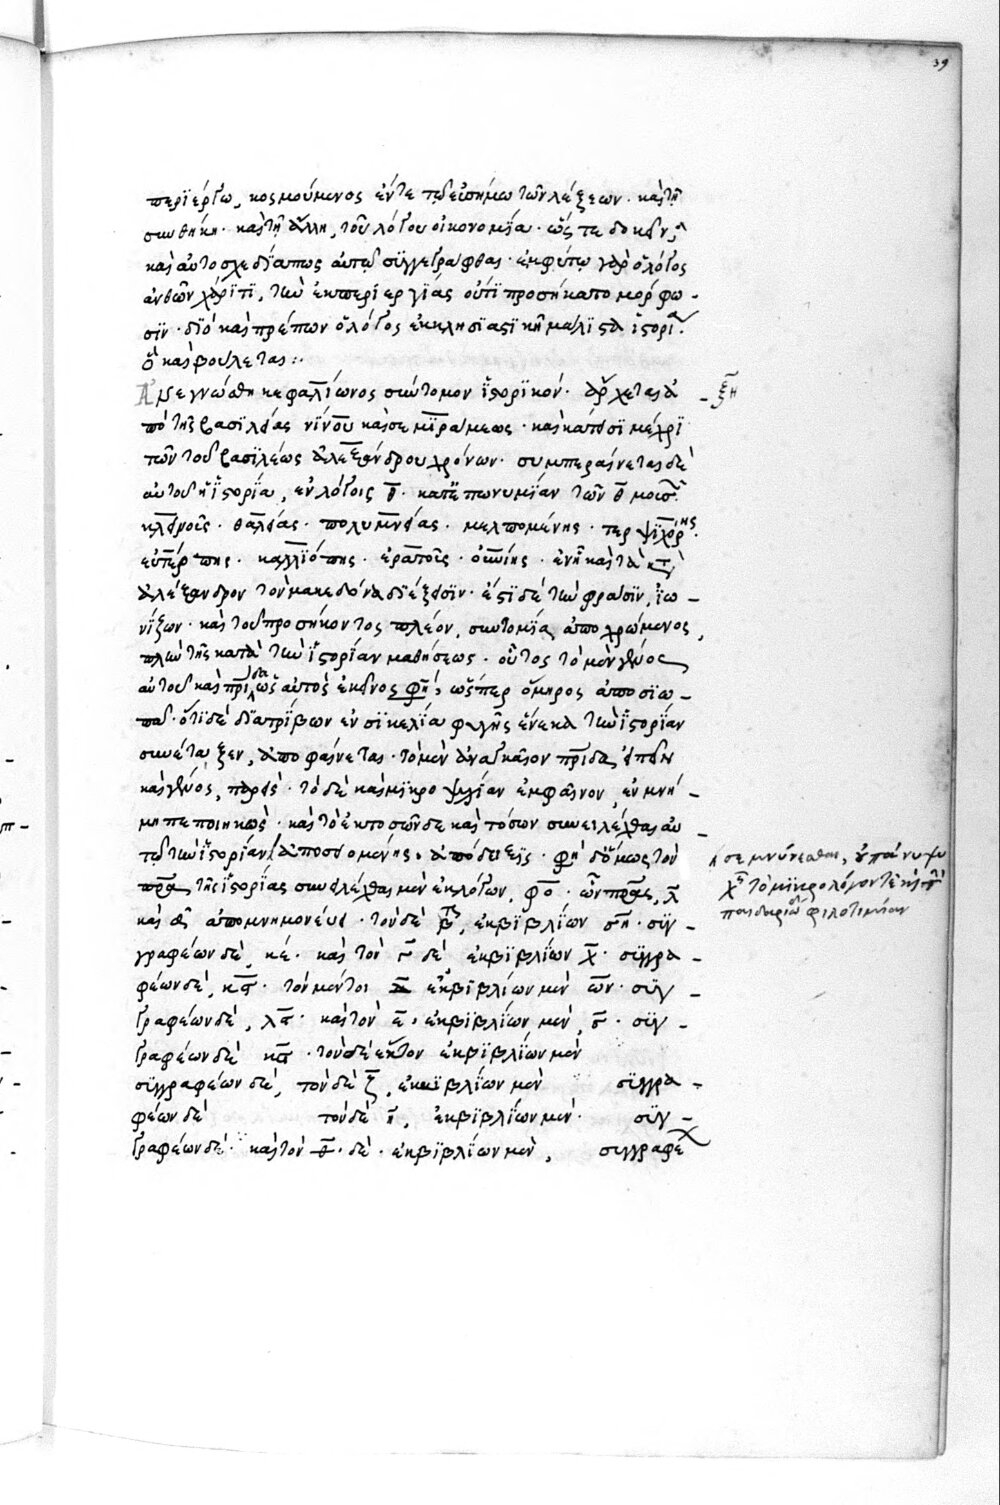 39
περϊέργω, κοσμούμενος ἔν τε τῶ εὐσήμω τῶν λέξεων· καὶ τῆ
συνθήκη· καὶ τῆ ἄλλη, τοῦ λόγου οἰκονομΐα· ὥς τε δοκεῖν,
καὶ αὐτοσχεδΐαπως αὐτῶ συγγεγράφθαι· ἐμφύτω γὰρ ὁ λόγος
ἀνθῶν χάριτι, τὴν ἐκ περϊεργΐας οὔτϊ προσήκατο μόρφω -
σϊν· δϊὸ καὶ πρέπων ὁ λόγος ἐκκλησϊαστϊκῆ μάλϊστα ἱστορΐα.
ὃ καὶ βούλεται:·
Ἀνεγνώσθη κεφαλΐωνος σύντομον ἱστορϊκόν· ἄρχεται ἀ - ξη
πὸ τῆς βασϊλείας νΐνου καὶ σεμϊράμεως· καὶ κάτεισϊ μέχρϊ
τῶν τοῦ βασϊλέως ἀλεξάνδρου χρόνων· συμπεραίνεται δὲ
αὐτοῦ ἡ ἱστορΐα, ἐν λόγοις θ· κατ' ἐπωνυμΐαν τῶν θ μουσῶν
κλειοῦς· θαλείας· πολυμνείας· μελπομένης· τερψϊχόρης·
εὐτέρπης· καλλϊόπης· ἐρατοῦς· οὐρανίης· ἐν ἧ καὶ τὰ κατὰ
ἀλέξανδρον τὸν μακεδόνα δϊέξεισϊν· ἔστϊ δὲ τὴν φράσϊν, ἰω -
νΐζων· καὶ τοῦ προσήκοντος πλέον, συντομΐα ἀποχρώμενος,
πλὴν τῆς κατὰ τὴν ἱστορΐαν μαθήσεως· οὗτος τὸ μὲν γένος
αὐτοῦ καὶ πατρίδα ὡς αὐτὸς ἐκεῖνος φησὶ, ὥσπερ ὅμηρος ἀποσϊω -
πᾶ· ὅτϊ δὲ δϊατρΐβων ἐν σϊκελΐα φυγῆς ἕνεκα τὴν ἱστορΐαν
συνέταξεν, ἀποφαίνεται· τὸ μὲν ἀναγκαῖον πατρίδα εἰπεῖν
καὶ γένος, παρεὶς· τὸ δὲ καὶ μϊκροψυχΐαν ἐμφαῖνον, ἐν μνή -
μη πεποιηκὼς· καὶ τὸ ἐκ τοσῶνδε καὶ τόσων συνειλέχθαι αὐ -
τῶ τὴν ἱστορΐαν ἀποσεσμένης, ἀπόδειξϊς· φησὶ δ' ὅμως τὸν
πρῶτον τῆς ἱστορΐας συνειλέχθαι μὲν ἐκ λόγων, φο· ὧν πατέρας, λ
καὶ ἕνα ἀπομνημονεύει· τὸν δὲ β, ἐκ βϊβλΐων ση· συγ -
γραφέων δὲ, κε· καὶ τὸν γ δὲ ἐκ βϊβλΐων χ· συγγρα -
φέων δὲ, κϛ· τὸν μέντοι δ ἐκ βϊβλΐων μὲν ων· συγ -
γραφέων δὲ, λϛ· καὶ τὸν ε, ἐκ βϊβλΐων μὲν, σ· συγ -
γραφέων δὲ κϛ· τὸν δὲ ἕκτον ἐκ βϊβλΐων μὲν
συγγραφέων δὲ, τὸν δὲ ζ, ἐκ βϊβλΐων μὲν συγγρα -
φέων δὲ τὸν δὲ η, ἐκ βϊβλΐων μέν· συγ -
γραφέων δὲ· καὶ τὸν θ· δὲ· ἐκ βϊβλΐων μὲν, συγγραφέ
σεμνύνεσθαι, ὑπάν ψυ
χῆς τὸ μϊκρολόγον
παιδαριῶδη φιλοτιμίαν